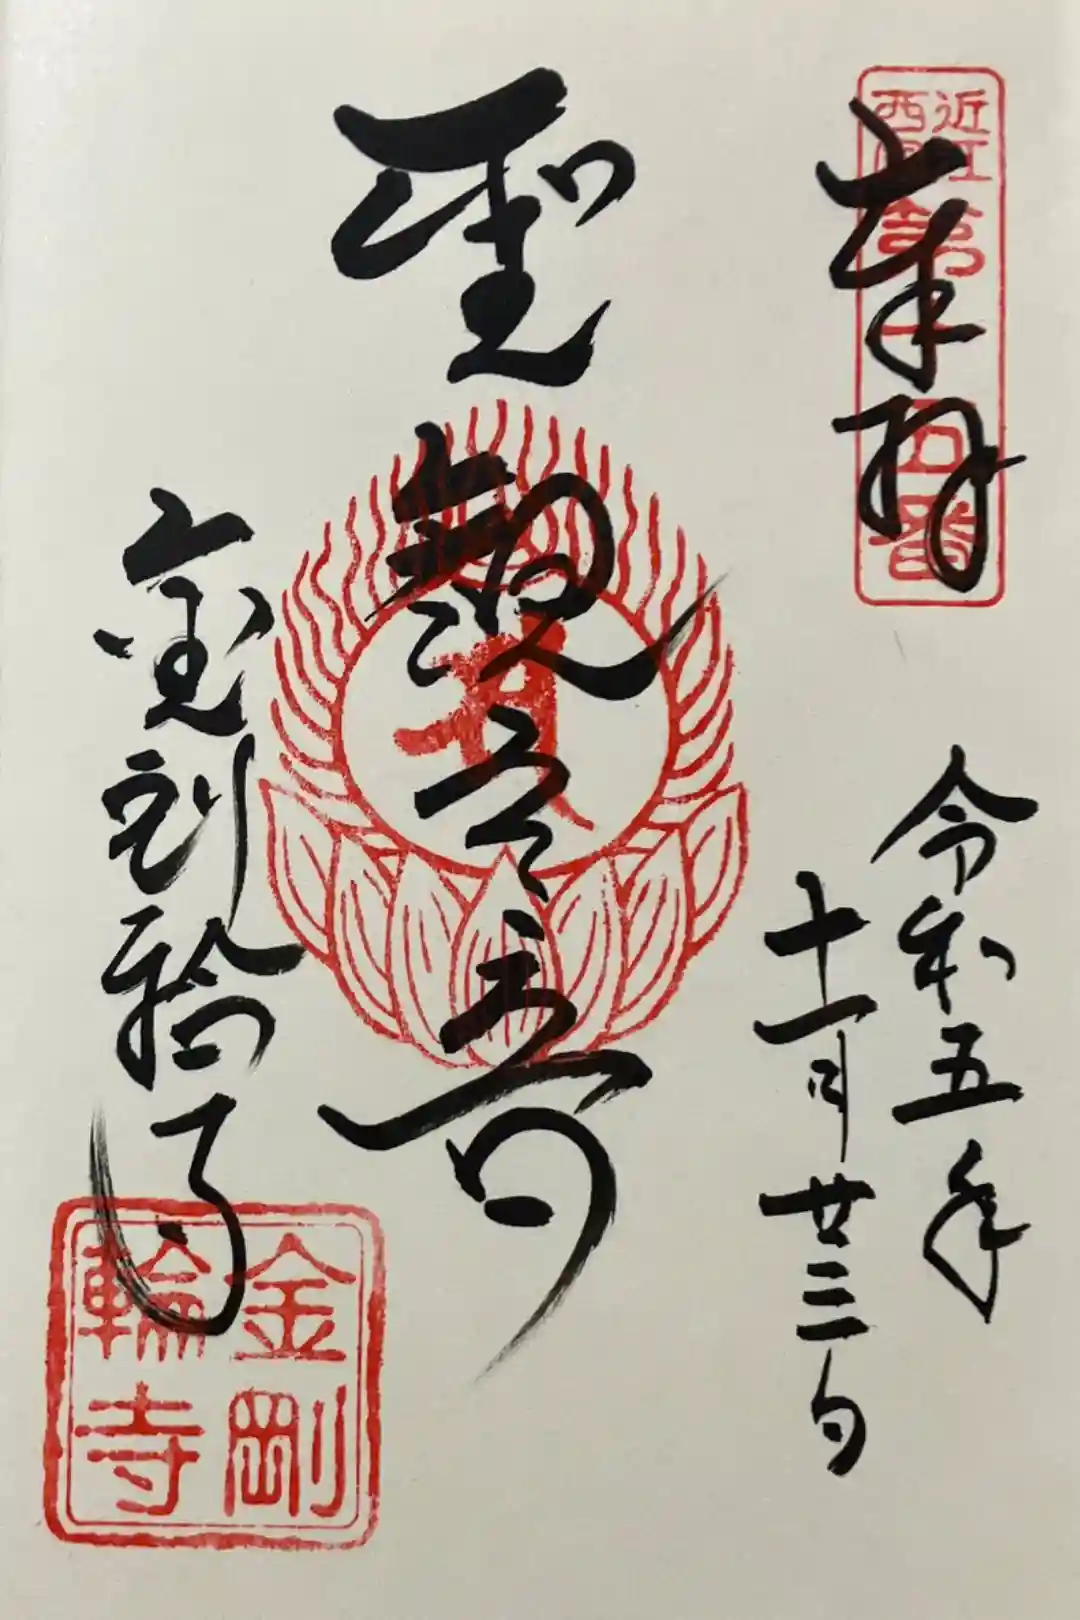 近江
西国
第十五番
奉拝
令和五年
十一月廿三日
聖觀
金剛輪寺
金剛
輪寺